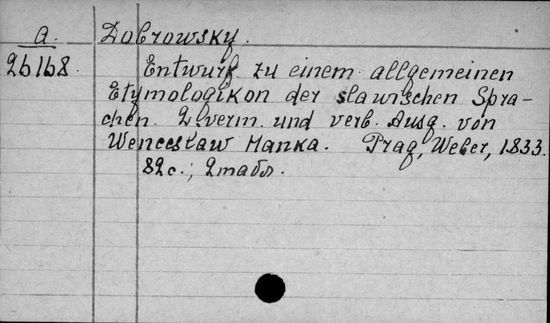 a. Dobrowsky.
26168. Entwurf zu einem allgemeinen
Etymologikon der slawischen Spra-
chen. 2 verm. und verb. Ausg. von
Wenceslaw Hanka. Prag, Weber, 1833.
82 c.; 2 табл.